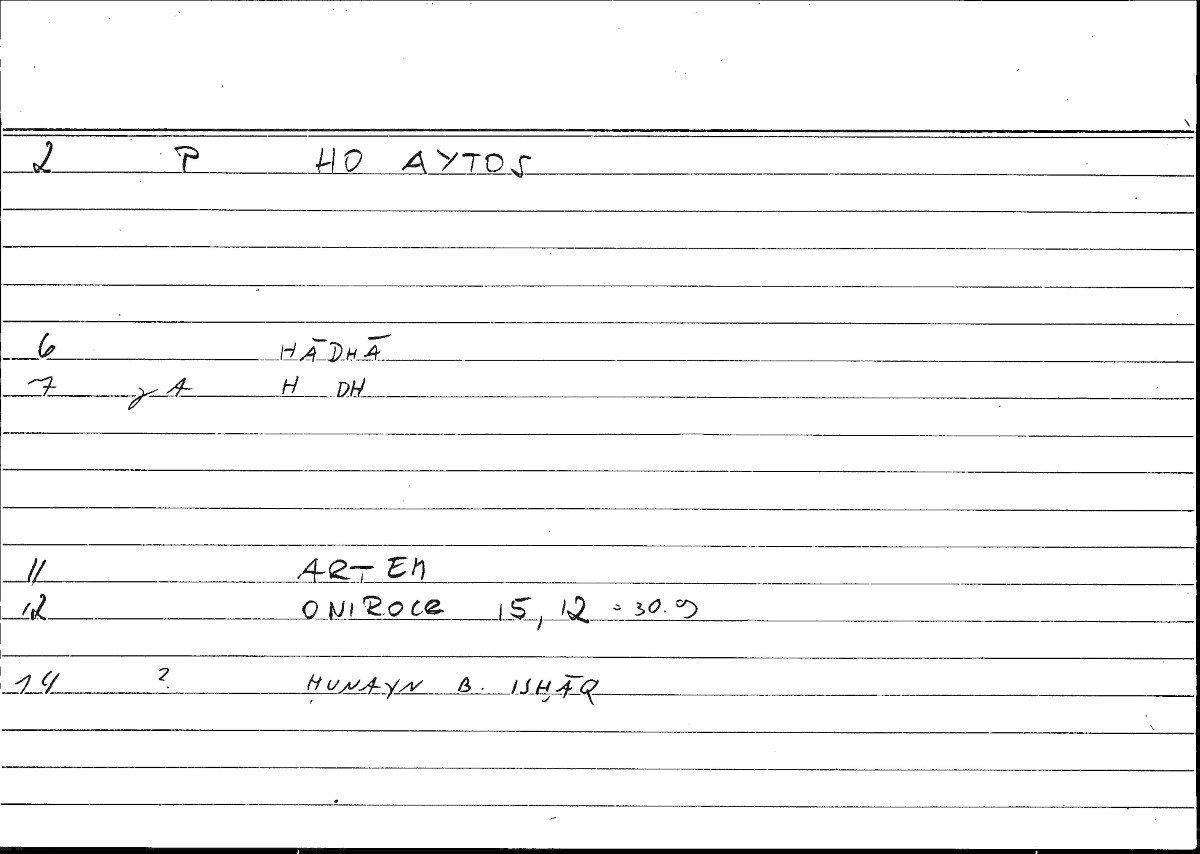 2 P HO AYTOS
6 HĀDHĀ
7 A H DH
11 ARTEM
12 ONIROCR 15, 12 = 30.9
14 ? ḤUNAYN B. ISḤĀQ